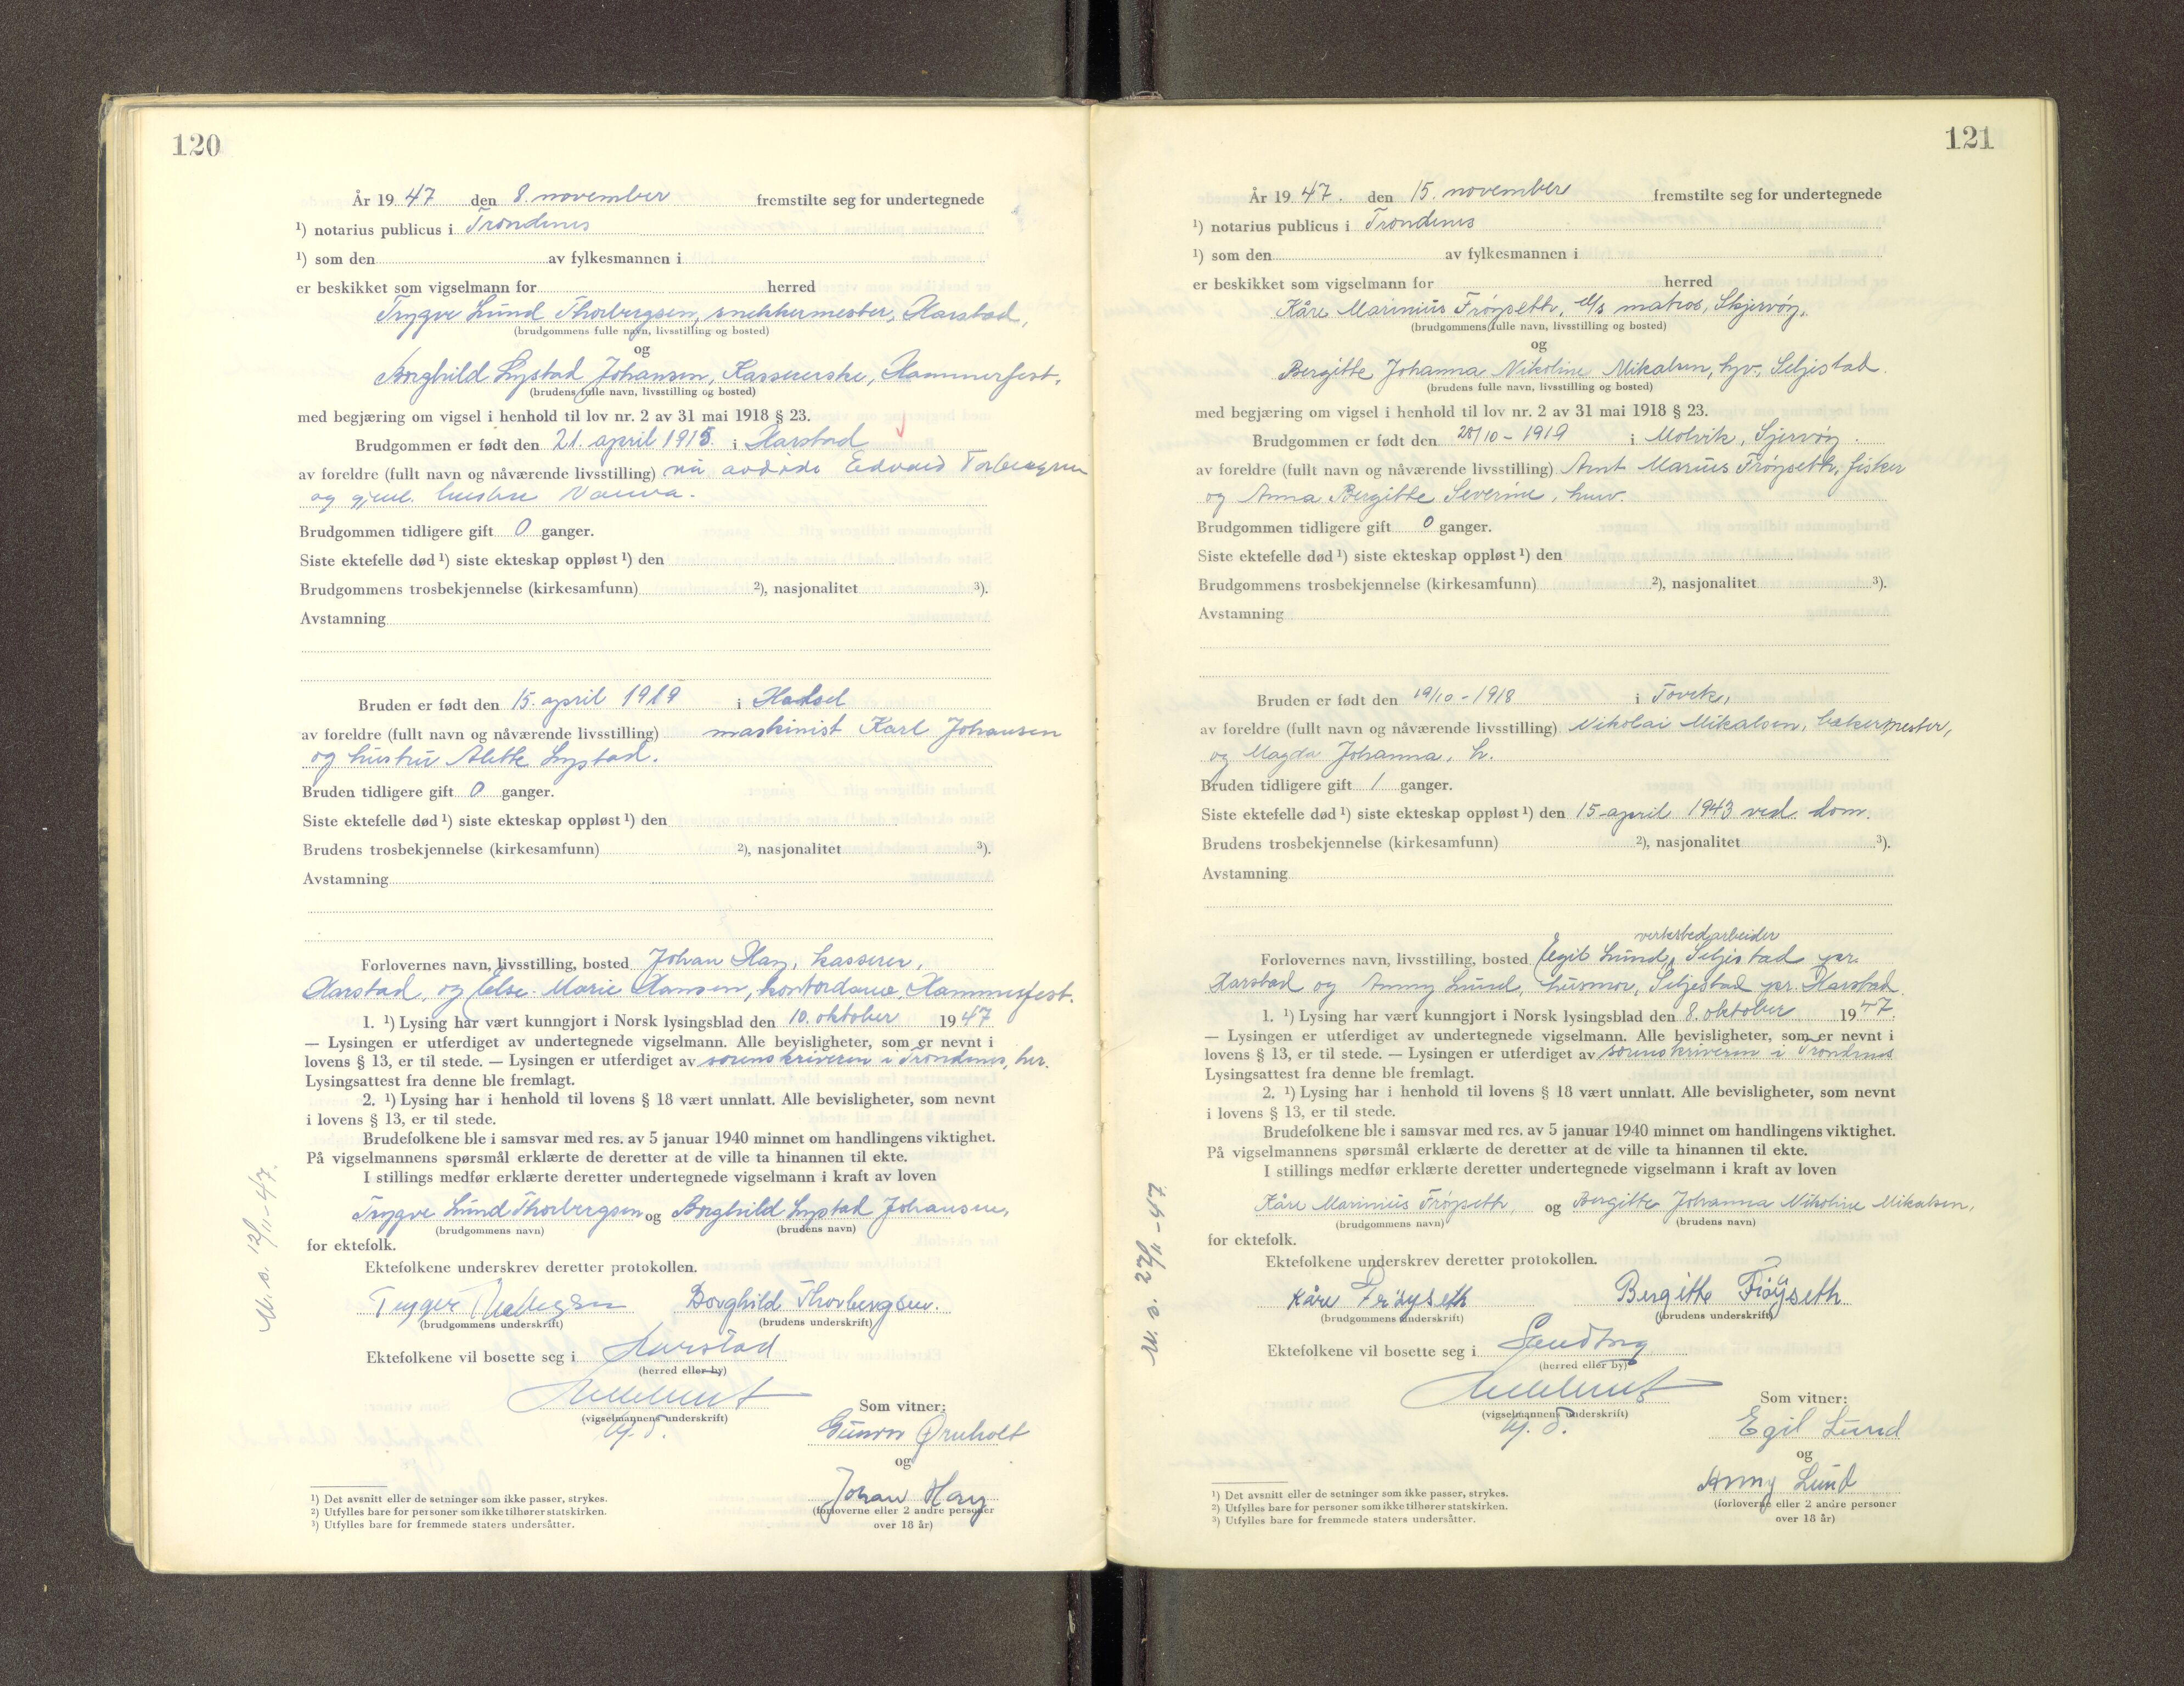 120
År 19 47 den 8. november fremstilte seg for undertegnede
¹) notarius publicus i Trondenes
¹) som den av fylkesmannen i
er beskikket som vigselmann for herred
Trygve Lund Thorbergsen, snekkermester, Harstad,
(brudgommens fulle navn, livsstilling og bosted)
og
Borghild Lystad Johansen, Kassererske, Hammerfest,
(brudens fulle navn, livsstilling og bosted)
med begjæring om vigsel i henhold til lov nr. 2 av 31 mai 1918 § 23.
Brudgommen er født den 21. april 1915. i Harstad
av foreldre (fullt navn og nåværende livsstilling) nå avdøde Edvard Torbergsen
og gjenl. hustru
Brudgommen tidligere gift 0 ganger.
Siste ektefelle død ¹) siste ekteskap oppløst ¹) den
Brudgommens trosbekjennelse (kirkesamfunn) ²), nasjonalitet ³).
Avstamning
Bruden er født den 15. april 1919 i Hadsel
av foreldre (fullt navn og nåværende livsstilling) maskinist Karl Johansen
og hustru Alette Lystad.
Bruden tidligere gift 0 ganger.
Siste ektefelle død ¹) siste ekteskap oppløst ¹) den
Brudens trosbekjennelse (kirkesamfunn) ²), nasjonalitet ³).
Avstamning
Forlovernes navn, livsstilling, bosted Johan Hay, kasserer,
Harstad, og Else-Marie Hansen, kontordame, Hammerfest.
1. ¹) Lysing har vært kunngjort i Norsk lysingsblad den 10. oktober 19 47
— Lysingen er utferdiget av undertegnede vigselmann. Alle bevisligheter, som er nevnt i
lovens § 13, er til stede. — Lysingen er utferdiget av sorenskriveren i Trondenes, her.
Lysingsattest fra denne ble fremlagt.
2. ¹) Lysing har i henhold til lovens § 18 vært unnlatt. Alle bevisligheter, som nevnt
i lovens § 13, er til stede.
Brudefolkene ble i samsvar med res. av 5 januar 1940 minnet om handlingens viktighet.
På vigselmannens spørsmål erklærte de deretter at de ville ta hinannen til ekte.
I stillings medfør erklærte deretter undertegnede vigselmann i kraft av loven
Trygve Lund Thorbergsen og Borghild Lystad Johansen,
(brudgommens navn) (brudens navn)
for ektefolk.
Ektefolkene underskrev deretter protokollen.
Borghild Thorbergsen.
(brudgommens underskrift) (brudens underskrift)
Ektefolkene vil bosette seg i Harstad
(herred eller by)
(vigselmannens underskrift)
Som vitner:
Gunvor Ørnholt
og
Johan Hay
(forloverne eller 2 andre personer
over 18 år)
M. s. 12/11-47.
¹) Det avsnitt eller de setninger som ikke passer, strykes.
²) Utfylles bare for personer som ikke tilhører statskirken.
³) Utfylles bare for fremmede staters undersåtter.
121
År 19 47. den 15. november fremstilte seg for undertegnede
¹) notarius publicus i Trondenes
¹) som den av fylkesmannen i
er beskikket som vigselmann for herred
Kåre Marinius Frøyseth, matros, Skjervøy,
(brudgommens fulle navn, livsstilling og bosted)
og
Bergitte Johanna Nikoline Mikalsen, Seljestad.
(brudens fulle navn, livsstilling og bosted)
med begjæring om vigsel i henhold til lov nr. 2 av 31 mai 1918 § 23.
Brudgommen er født den 28/10-1919 i Molvik, Sjervøy.
av foreldre (fullt navn og nåværende livsstilling) Arnt Marius Frøyseth, fisker
og Anna Bergitte Severine, husv.
Brudgommen tidligere gift 0 ganger.
Siste ektefelle død ¹) siste ekteskap oppløst ¹) den
Brudgommens trosbekjennelse (kirkesamfunn) ²), nasjonalitet ³).
Avstamning
Bruden er født den 19/10-1918 i Tovik,
av foreldre (fullt navn og nåværende livsstilling) Nikolai Mikalsen, bakermester,
og Magda Johanna, h.
Bruden tidligere gift 1 ganger.
Siste ektefelle død ¹) siste ekteskap oppløst ¹) den 15. april 1943 ved dom.
Brudens trosbekjennelse (kirkesamfunn) ²), nasjonalitet ³).
Avstamning
verkstedarbeider
Forlovernes navn, livsstilling, bosted Egil Lund, Seljestad pr.
Harstad og Anny Lund, husmor, Seljestad pr. Harstad.
1. ¹) Lysing har vært kunngjort i Norsk lysingsblad den 8. oktober 19 47.
— Lysingen er utferdiget av undertegnede vigselmann. Alle bevisligheter, som er nevnt i
lovens § 13, er til stede. — Lysingen er utferdiget av sorenskriveren i Trondenes
Lysingsattest fra denne ble fremlagt.
2. ¹) Lysing har i henhold til lovens § 18 vært unnlatt. Alle bevisligheter, som nevnt
i lovens § 13, er til stede.
Brudefolkene ble i samsvar med res. av 5 januar 1940 minnet om handlingens viktighet.
På vigselmannens spørsmål erklærte de deretter at de ville ta hinannen til ekte.
I stillings medfør erklærte deretter undertegnede vigselmann i kraft av loven
Kåre Marinius Frøyseth, og Bergitte Johanna Nikoline Mikalsen,
(brudgommens navn) (brudens navn)
for ektefolk.
Ektefolkene underskrev deretter protokollen.
Kåre Frøyseth Bergitte Frøyseth
(brudgommens underskrift) (brudens underskrift)
Ektefolkene vil bosette seg i Sandtorg
(herred eller by)
(vigselmannens underskrift)
Som vitner:
Egil Lund
og
Anny Lund
(forloverne eller 2 andre personer
over 18 år)
M. s. 27/11-47.
¹) Det avsnitt eller de setninger som ikke passer, strykes.
²) Utfylles bare for personer som ikke tilhører statskirken.
³) Utfylles bare for fremmede staters undersåtter.